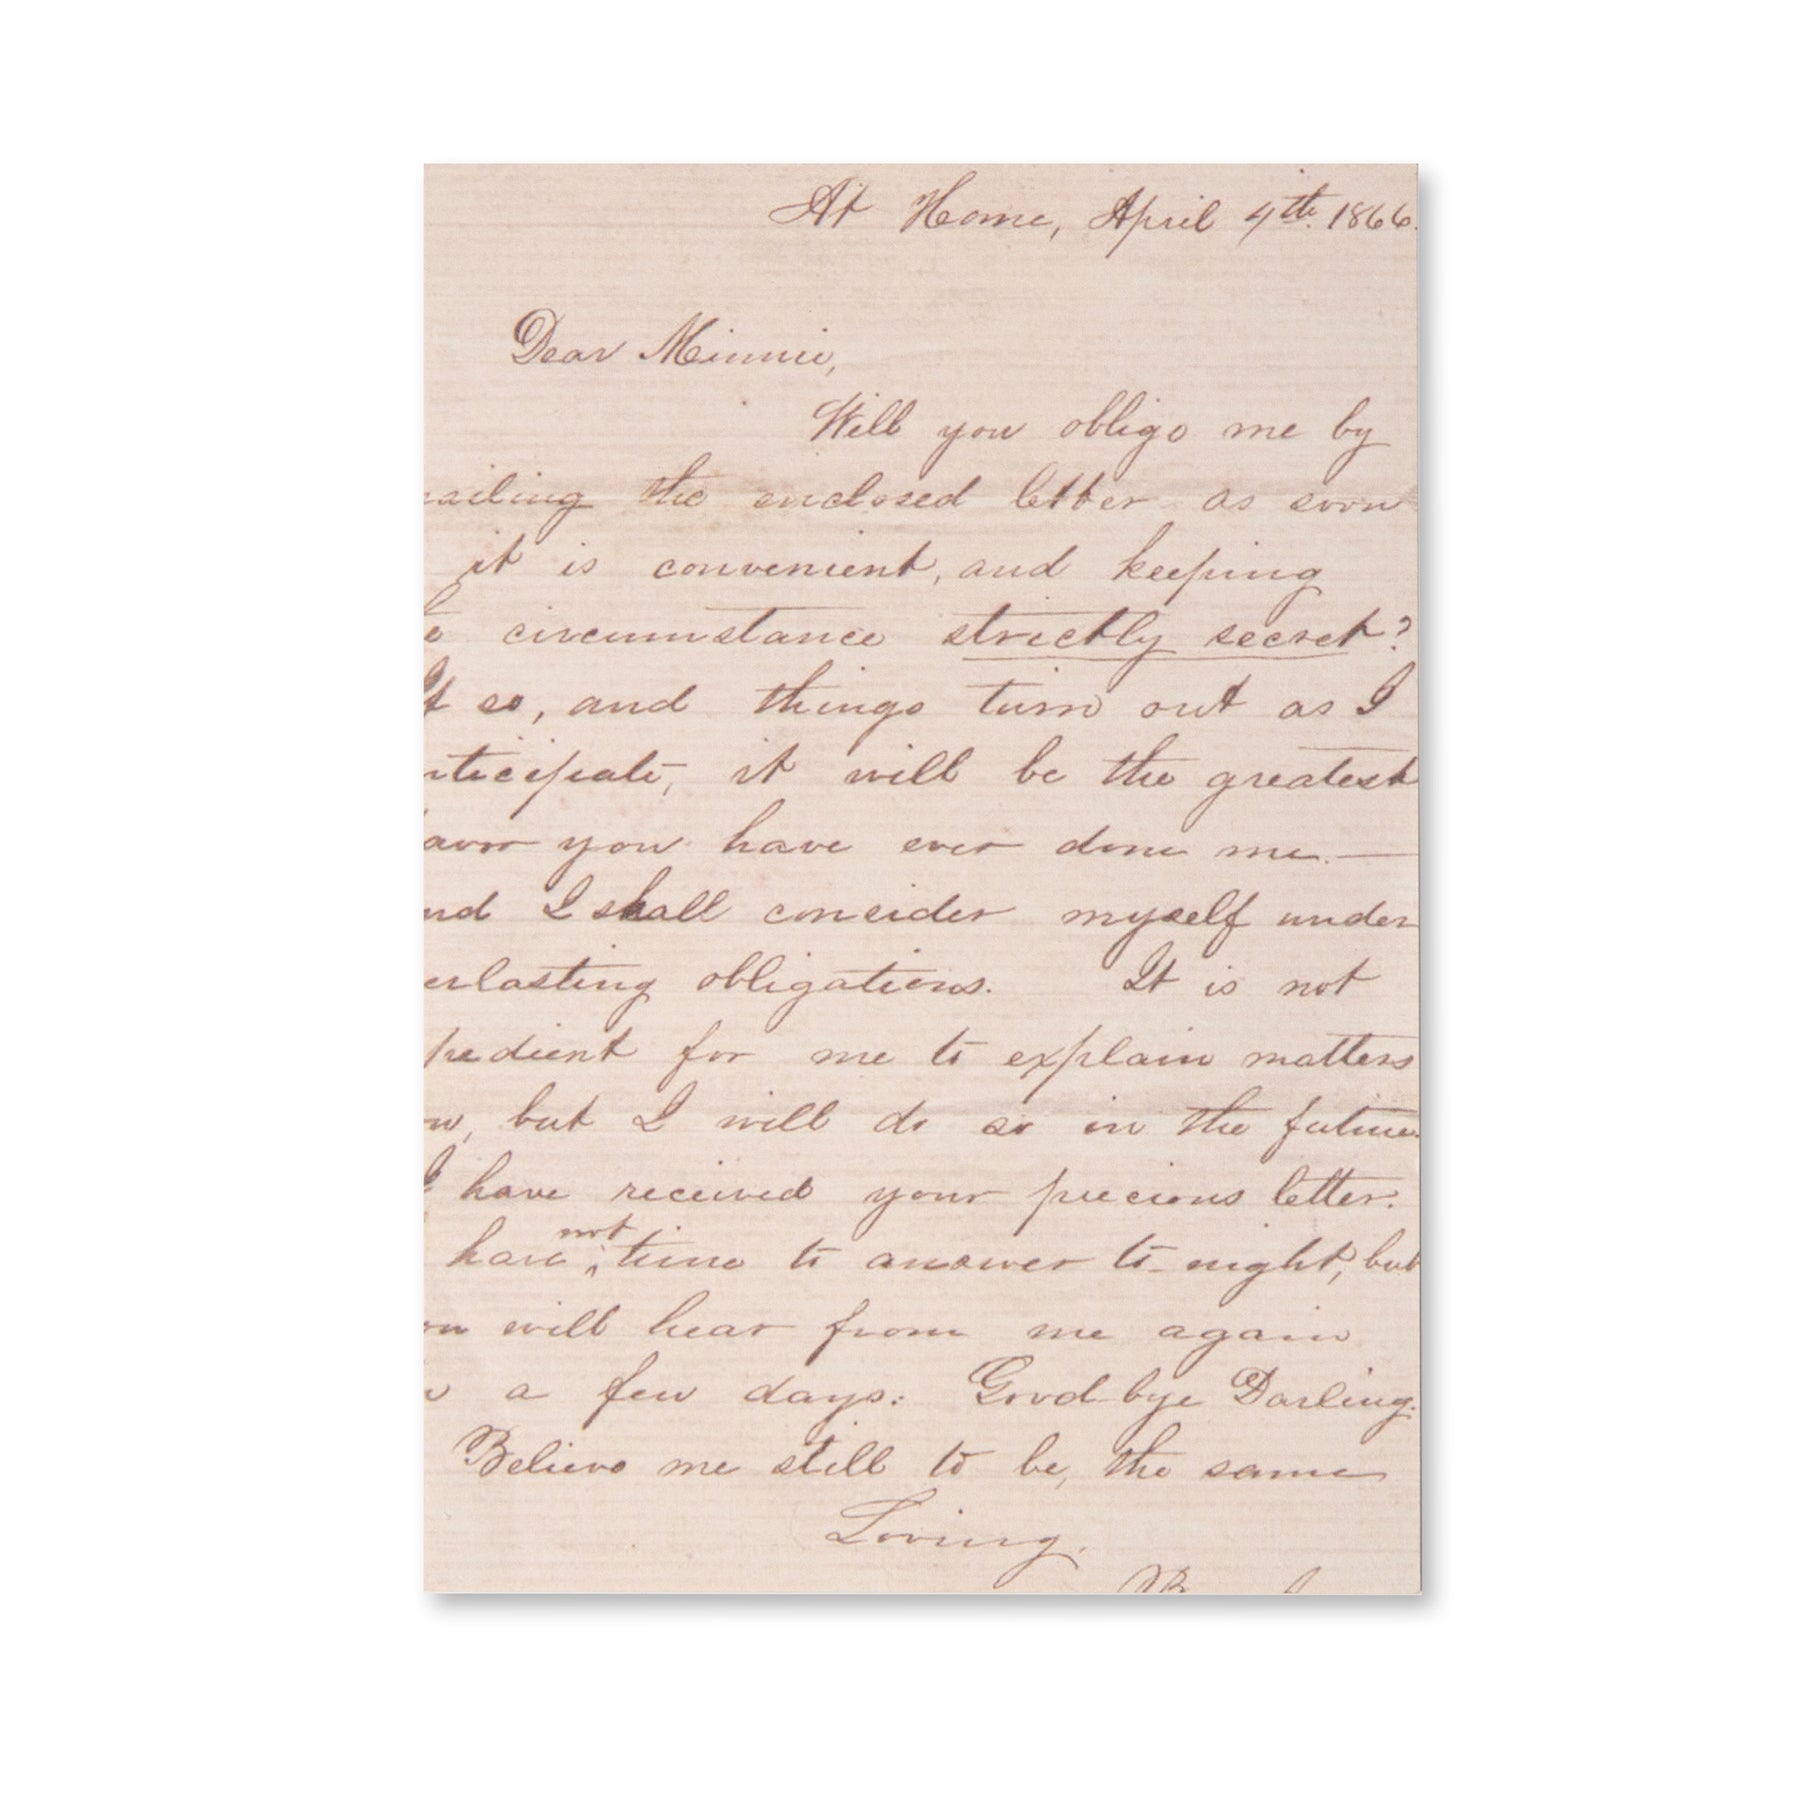 At Home, April 4th. 1866.
Dear Minnie,
Will you oblige me by
ailing the enclosed letter as soon
it is convenient, and keeping
e circumstance strictly secret?
If so, and things turn out as I
nticipate, it will be the greatest
avor you have ever done me. —
nd I shall consider myself under
erlasting obligations. It is not
pedient for me to explain matters
ow, but I will do so in the future.
I have received your precious letter.
have not time to answer to-night, but
ou will hear from me again
n a few days. Good-bye Darling.
Believe me still to be, the same
Loving.